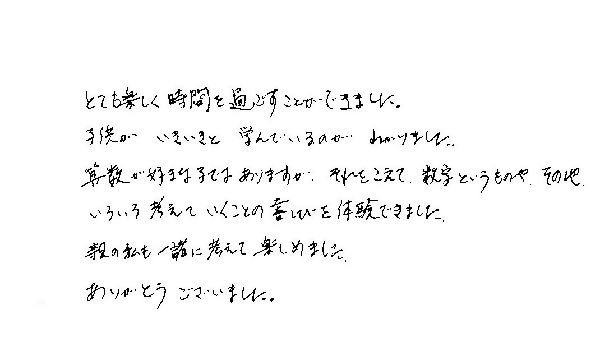 とても楽しく時間を過ごすことができました。
子供が いきいきと 学んでいるのが わかりました。
算数が好きな子ではありますが、それをこえて、数字というものや、その他、
いろいろ考えていくことの喜びを体験できました。
親の私も一諸に考えて楽しめました。
ありがとうございました。